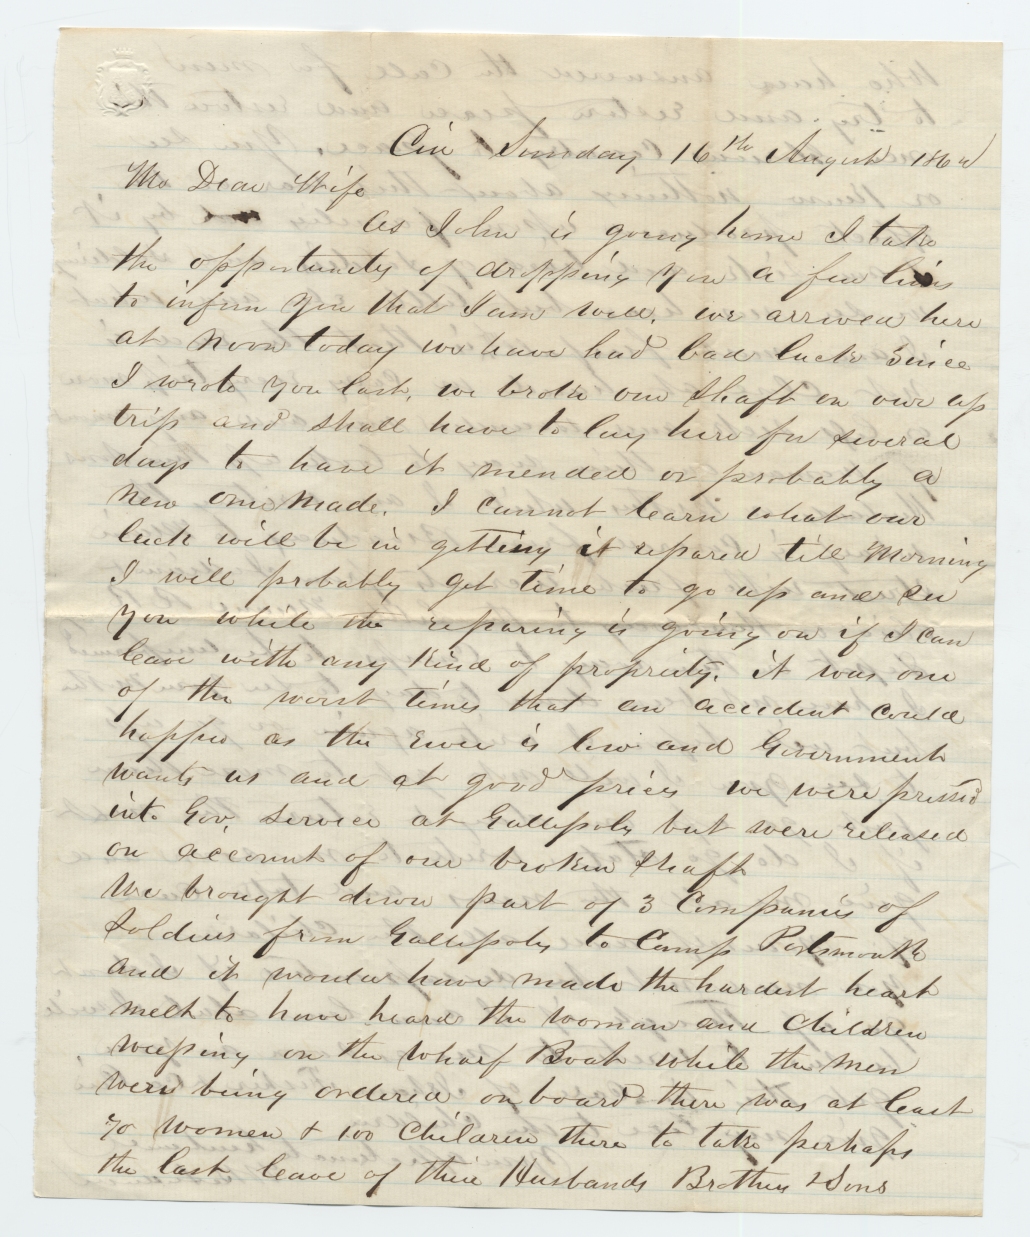 Cin Sunday 16th August 186
My Dear Wife
As John is going home I take
the opportunity of dropping you a few lines
to inform you that I am well. we arrived here
at Noon today we have had bad luck since
I wrote you last, we broke our shaft on our up
trip and shall have to lay here for several
days to have it mended or probably a
New one Made. I cannot learn what our
luck will be in getting it repared till Morning
I will probably get time to go up and see
you while the reparing is going on if I can
leave with any Kind of propriety. it was one
of the worst times that an accident could
happen as the River is low and Government
wants us and at good prices we were pressed
into Gov. service at Gallipoly but were released
on account of our broken shaft
We brought down part of 3 Companies of
Soldiers from Gallipoly to Camp Portsmouth
and it would have made the hardest heart
melt to have heard the woman and Children
weeping on the Wharf Boat while the men
were being ordered on board there was at least
70 women & 100 Children there to take perhaps
the last leave of their Husbands Brothers & Sons